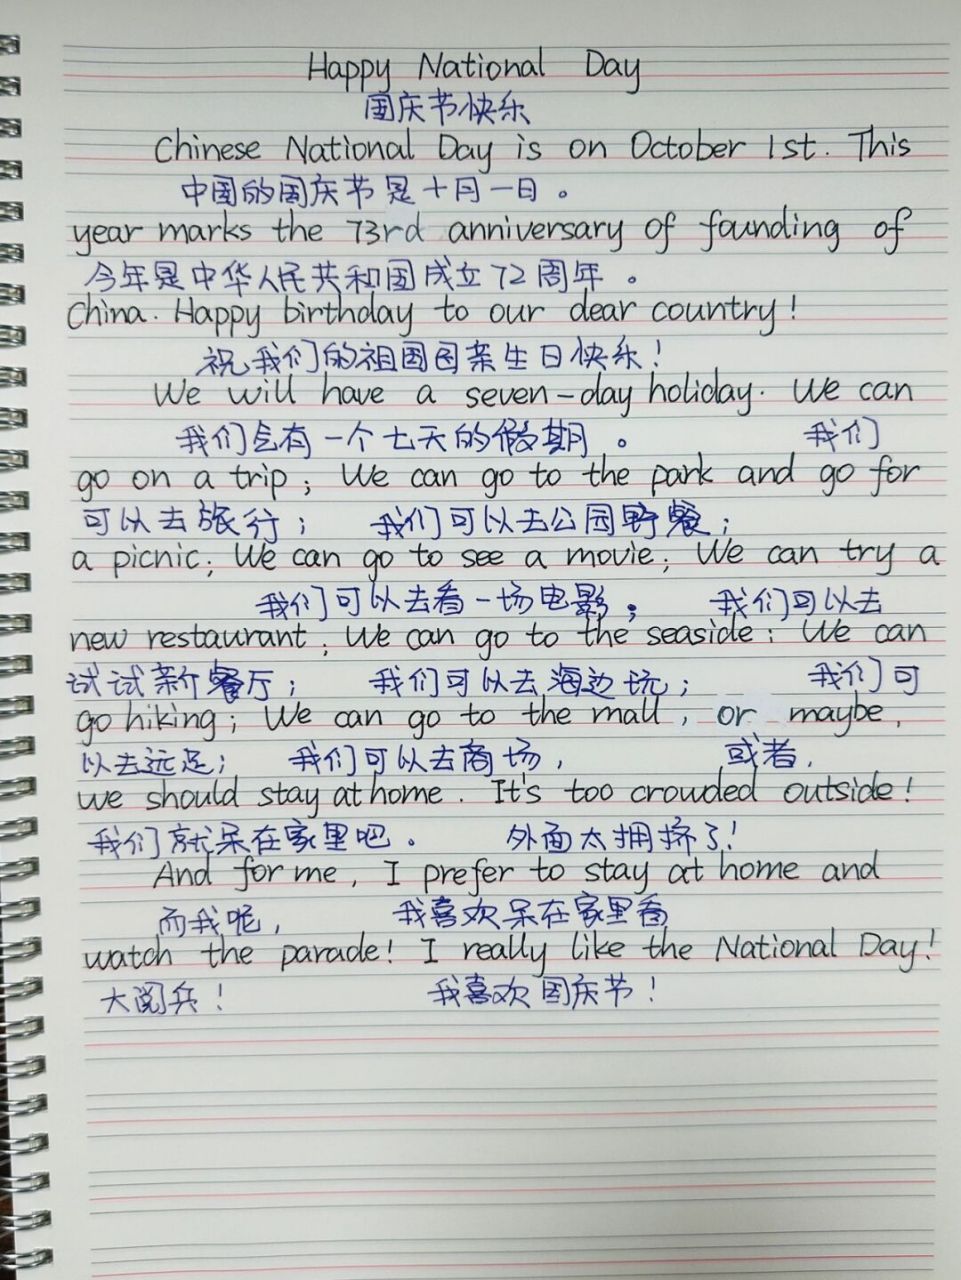 Happy National Day
国庆节快乐
Chinese National Day is on October 1st. This
中国的国庆节是十月一日。
year marks the 73rd anniversary of founding of
今年是中华人民共和国成立72周年。
China. Happy birthday to our dear country!
祝我们的祖国母亲生日快乐!
We will have a seven-day holiday. We can
我们会有一个七天的假期。 我们
go on a trip; We can go to the park and go for
可以去旅行; 我们可以去公园野餐;
a picnic; We can go to see a movie; We can try a
我们可以去看一场电影; 我们可以去
new restaurant; We can go to the seaside; We can
试试新餐厅; 我们可以去海边玩; 我们可
go hiking; We can go to the mall, or maybe,
以去远足; 我们可以去商场, 或者,
we should stay at home. It's too crowded outside!
我们就呆在家里吧。 外面太拥挤了!
And for me, I prefer to stay at home and
而我呢, 我喜欢呆在家里看
watch the parade! I really like the National Day!
大阅兵! 我喜欢国庆节!